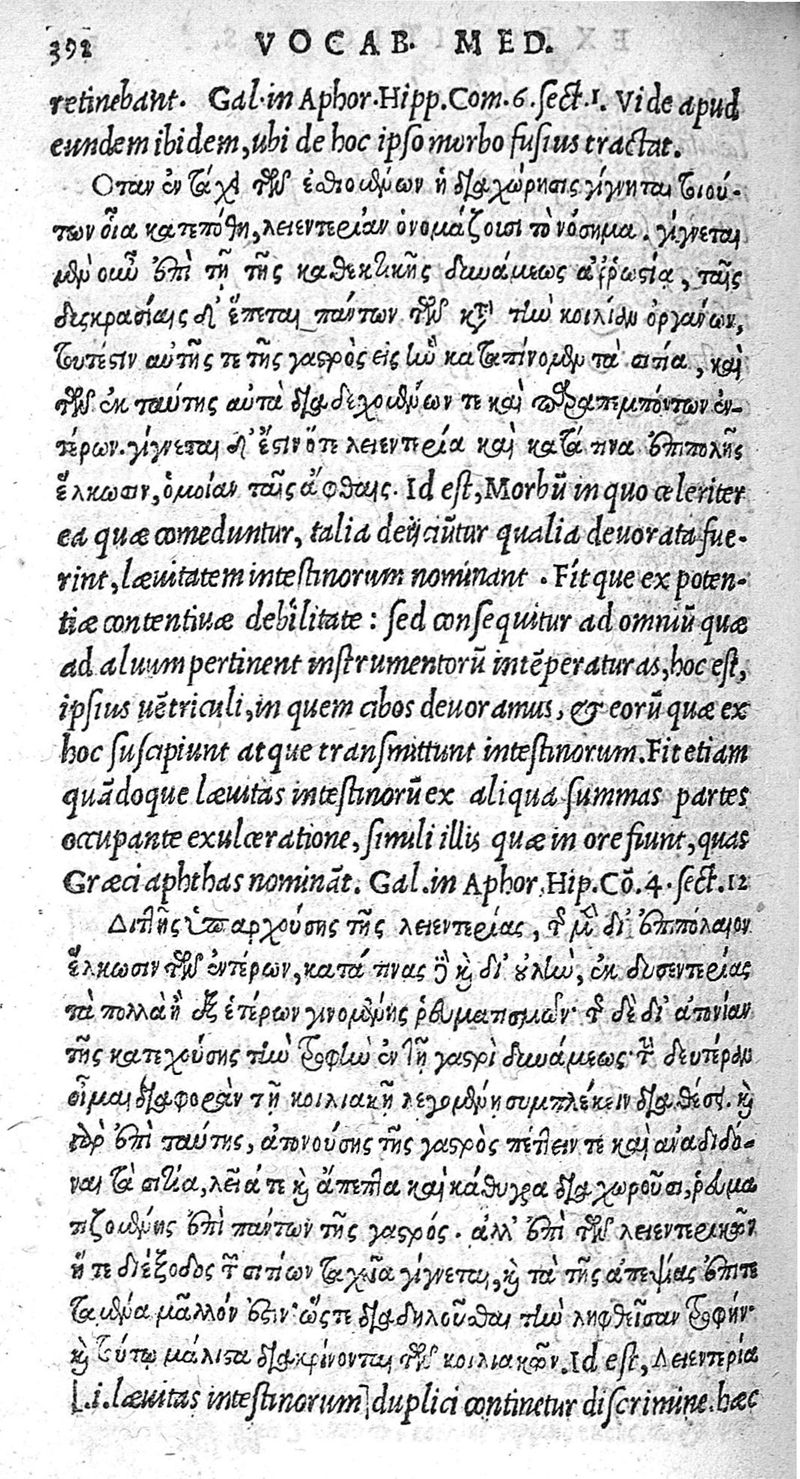 392 VOCAB. MED.
retinebant. Gal. in Aphor. Hipp. Com. 6. sect. 1. Vide apud
eundem ibidem, ubi de hoc ipso morbo fusius tractat.
Οταν ἐν τάχει τῶν ἐσθιομένων ἡ διαχώρησις γίγνηται τοιού-
των οἷα κατεπόθη, λειεντερίαν ὀνομάζουσι τὸ νόσημα. γίγνεται
μὲν οὖν ἐπὶ τῇ τῆς καθεκτικῆς δυνάμεως ἀῤῥωστία, ταῖς
δυσκρασίαις δ' ἕπεται πάντων τῶν κατὰ τὴν κοιλίαν ὀργάνων,
τουτέστιν αὐτῆς τε τῆς γαστρὸς εἰς ἣν καταπίνομεν τὰ σιτία, καὶ
τῶν ἐκ ταύτης αὐτὰ διαδεχομένων τε καὶ παραπεμπόντων ἐν-
τέρων. γίγνεται δ' ἔστιν ὅτε λειεντερία καὶ κατά τινα ἐπιπολῆς
ἕλκωσιν, ὁμοίαν ταῖς ἄφθαις. Id est, Morbū in quo celeriter
ea quæ comeduntur, talia deijciūtur qualia devorata fue-
rint, lævitatem intestinorum nominant. Fit que ex poten-
tiæ contentivæ debilitate: sed consequitur ad omniū quæ
ad aluum pertinent instrumentorū intēperaturas, hoc est,
ipsius vētriculi, in quem cibos devoramus, & eorū quæ ex
hoc suscipiunt atque transmittunt intestinorum. Fit etiam
quādoque lævitas intestinorū ex aliqua summas partes
occupante exulceratione, simili illis quæ in ore fiunt, quas
Græci aphthas nomināt. Gal. in Aphor. Hip. Cō. 4. sect. 12
Διττῆς ὑπαρχούσης τῆς λειεντερίας, τῆς μὲν δι' ἐπιπόλαιον
ἕλκωσιν τῶν ἐντέρων, κατά τινας δὲ καὶ δι' οὐλὴν, ἐκ δυσεντερίας
τὰ πολλὰ ἢ ἐξ ἑτέρων γινομένης ῥευματισμῶν· τῆς δὲ δι' ἀτονίαν
τῆς κατεχούσης τὴν τροφὴν ἐν τῇ γαστρὶ δυνάμεως· τὴν δευτέραν
οἶμαι διαφορὰν τῇ κοιλιακῇ λεγομένῃ συμπλέκειν διαθέσει. καὶ
γὰρ ἐπὶ ταύτης, ἀτονούσης τῆς γαστρὸς πέττειν τε καὶ ἀναδιδό-
ναι τὰ σιτία, λεῖά τε καὶ ἄπεπτα καὶ κάθυγρα διαχωροῦσι, ῥευμα
τιζομένης ἐπὶ πάντων τῆς γαστρός. ἀλλ' ἐπὶ τῶν λειεντερικῶν
ἥ τε διέξοδος τῶν σιτίων ταχεῖα γίγνεται, καὶ τὰ τῆς ἀπεψίας ἐπιτε
ταμένα μᾶλλόν ἐστιν· ὥστε διαδηλοῦσθαι τὴν ληφθεῖσαν τροφήν·
καὶ τούτῳ μάλιστα διακρίνονται τῶν κοιλιακῶν. Id est, Λειεντερία
[.i. lævitas intestinorum] duplici continetur discrimine. hæc